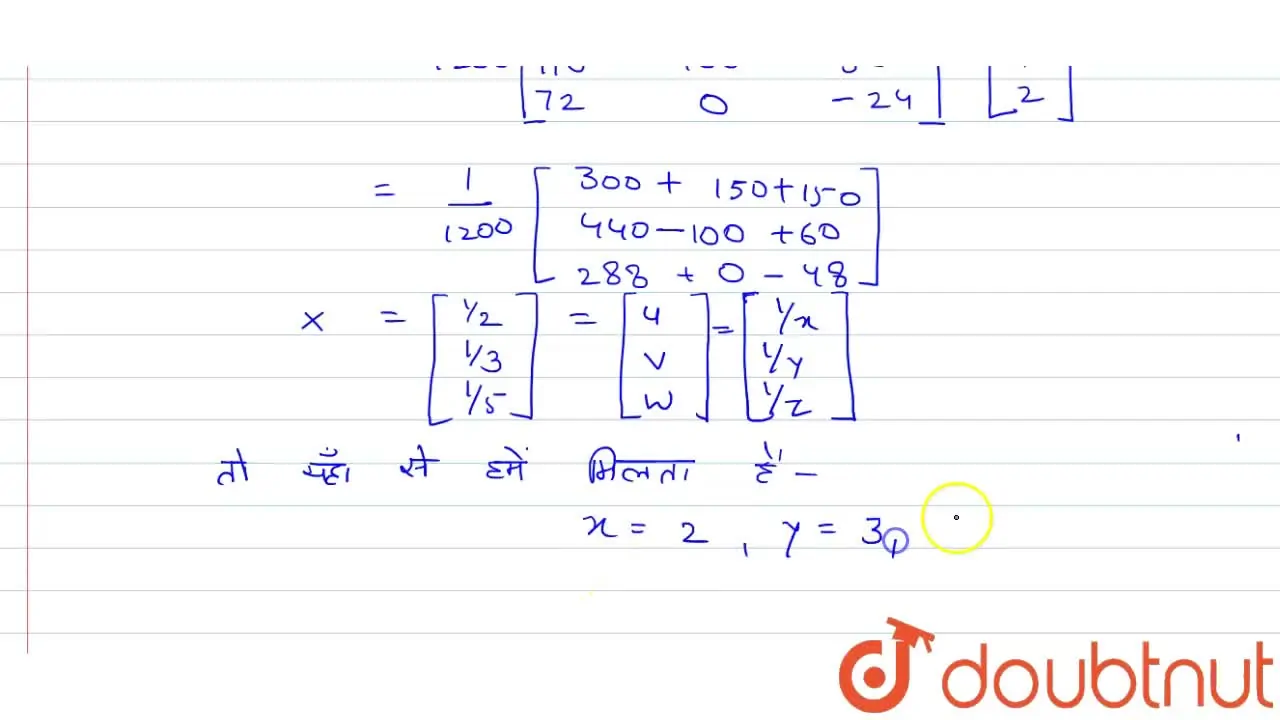 72 0 - 24 2
= 1/1200 [ 300 + 150 + 150
440 - 100 + 60
288 + 0 - 48 ]
x = [ 1/2 = [ u = [ 1/x
1/3 v 1/y
1/5 ] w ] 1/z ]
तो यहाँ से हमें मिलता है -
x = 2 , y = 3,
doubtnut